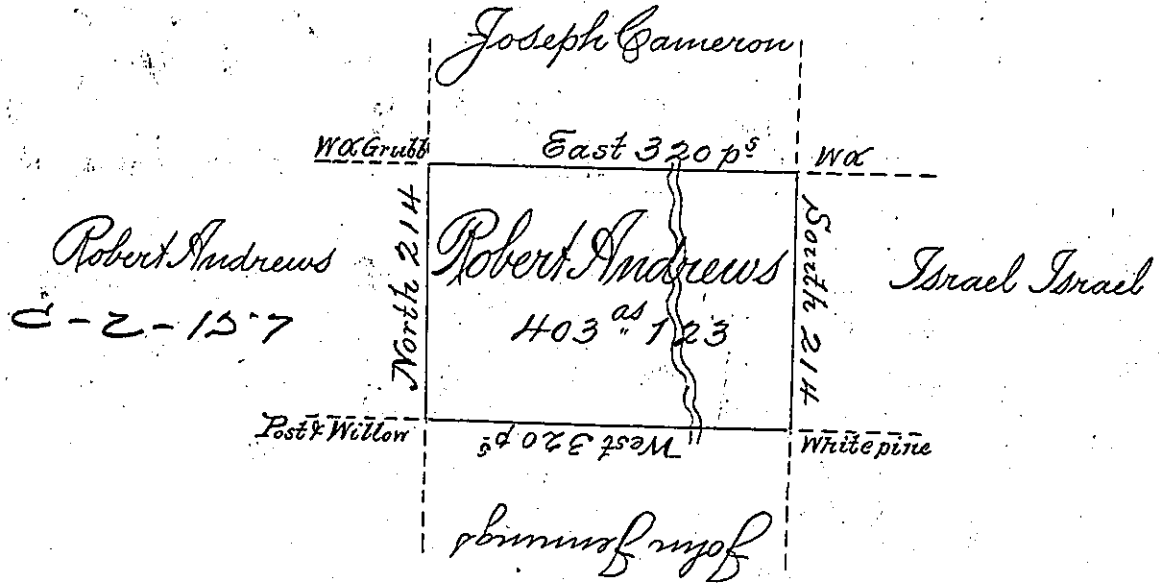 Joseph Cameron
WO Grubb
East 320 pˢ
WO
Robert Andrews
C-2-157
North 214
Robert Andrews
403 ᵃˢ " 123
South 214
Israel Israel
Post & Willow
West 320 pˢ
White pine
John Jennings